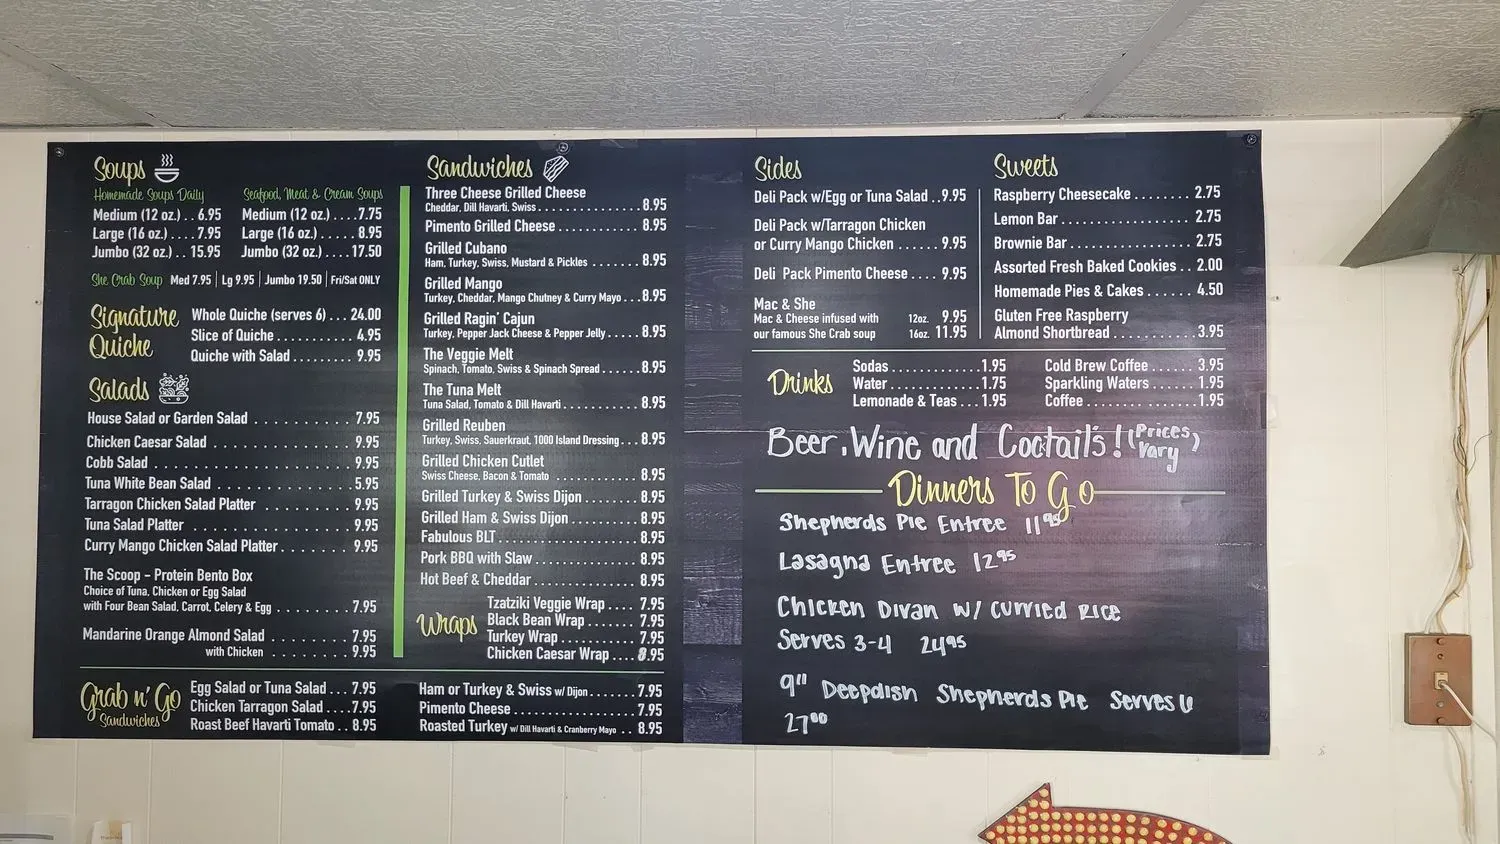 Soups
Homemade Soups Daily
Medium (12 oz.) . . 6.95
Large (16 oz.) . . . . 7.95
Jumbo (32 oz.) . . 15.95
Seafood, Meat & Cream Soups
Medium (12 oz.) . . . . 7.75
Large (16 oz.) . . . . . 8.95
Jumbo (32 oz.) . . . . 17.50
She Crab Soup Med 7.95 | Lg 9.95 | Jumbo 19.50 | Fri/Sat ONLY
Signature Quiche
Whole Quiche (serves 6) . . . 24.00
Slice of Quiche . . . . . . . . . 4.95
Quiche with Salad . . . . . . . . 9.95
Salads
House Salad or Garden Salad . . . . . . . . . 7.95
Chicken Caesar Salad . . . . . . . . . . . . 9.95
Cobb Salad . . . . . . . . . . . . . . . . . 9.95
Tuna White Bean Salad . . . . . . . . . . . . 5.95
Tarragon Chicken Salad Platter . . . . . . . . 9.95
Tuna Salad Platter . . . . . . . . . . . . . . 9.95
Curry Mango Chicken Salad Platter . . . . . . 9.95
The Scoop – Protein Bento Box
Choice of Tuna, Chicken or Egg Salad
with Four Bean Salad, Carrot, Celery & Egg . . . . . . . . 7.95
Mandarine Orange Almond Salad . . . . . . . . 7.95
with Chicken . . . . . . . . 9.95
Sandwiches
Three Cheese Grilled Cheese
Cheddar, Dill Havarti, Swiss . . . . . . . . . . . . . . 8.95
Pimento Grilled Cheese . . . . . . . . . . . 8.95
Grilled Cubano
Ham, Turkey, Swiss, Mustard & Pickles . . . . . . . . 8.95
Grilled Mango
Turkey, Cheddar, Mango Chutney & Curry Mayo . . . 8.95
Grilled Ragin' Cajun
Turkey, Pepper Jack Cheese & Pepper Jelly . . . . . 8.95
The Veggie Melt
Spinach, Tomato, Swiss & Spinach Spread . . . . . . 8.95
The Tuna Melt
Tuna Salad, Tomato & Dill Havarti . . . . . . . . . . . 8.95
Grilled Reuben
Turkey, Swiss, Sauerkraut, 1000 Island Dressing . . . 8.95
Grilled Chicken Cutlet
Swiss Cheese, Bacon & Tomato . . . . . . . . . . . . 8.95
Grilled Turkey & Swiss Dijon . . . . . . . . 8.95
Grilled Ham & Swiss Dijon . . . . . . . . . 8.95
Fabulous BLT . . . . . . . . . . . . . . . . . 8.95
Pork BBQ with Slaw . . . . . . . . . . . . . 8.95
Hot Beef & Cheddar . . . . . . . . . . . . . 8.95
Wraps
Tzatziki Veggie Wrap . . . . 7.95
Black Bean Wrap . . . . . . . 7.95
Turkey Wrap . . . . . . . . . . 7.95
Chicken Caesar Wrap . . . . 8.95
Grab n' Go
Sandwiches
Egg Salad or Tuna Salad . . . 7.95
Chicken Tarragon Salad . . . . 7.95
Roast Beef Havarti Tomato . . 8.95
Ham or Turkey & Swiss w/ Dijon . . . . . . . 7.95
Pimento Cheese . . . . . . . . . . . . . . . . 7.95
Roasted Turkey w/ Dill Havarti & Cranberry Mayo . . 8.95
Sides
Deli Pack w/Egg or Tuna Salad . . 9.95
Deli Pack w/Tarragon Chicken
or Curry Mango Chicken . . . . . . 9.95
Deli Pack Pimento Cheese . . . . 9.95
Mac & She
Mac & Cheese infused with 12oz. 9.95
our famous She Crab soup 16oz. 11.95
Sweets
Raspberry Cheesecake . . . . . . . . 2.75
Lemon Bar . . . . . . . . . . . . . . . . 2.75
Brownie Bar . . . . . . . . . . . . . . . 2.75
Assorted Fresh Baked Cookies . . 2.00
Homemade Pies & Cakes . . . . . . 4.50
Gluten Free Raspberry
Almond Shortbread . . . . . . . . . . 3.95
Drinks
Sodas . . . . . . . . . . . . . 1.95
Water . . . . . . . . . . . . . 1.75
Lemonade & Teas . . . 1.95
Cold Brew Coffee . . . . . . 3.95
Sparkling Waters . . . . . . 1.95
Coffee . . . . . . . . . . . . . . 1.95
Beer, Wine and Coctail's! (Prices Vary)
Dinners To Go
Shepherds Pie Entree 11.95
Lasagna Entree 12.95
Chicken Divan w/ Curried Rice
Serves 3-4 24.95
9" Deepdish Shepherds Pie Serves 6
27.00